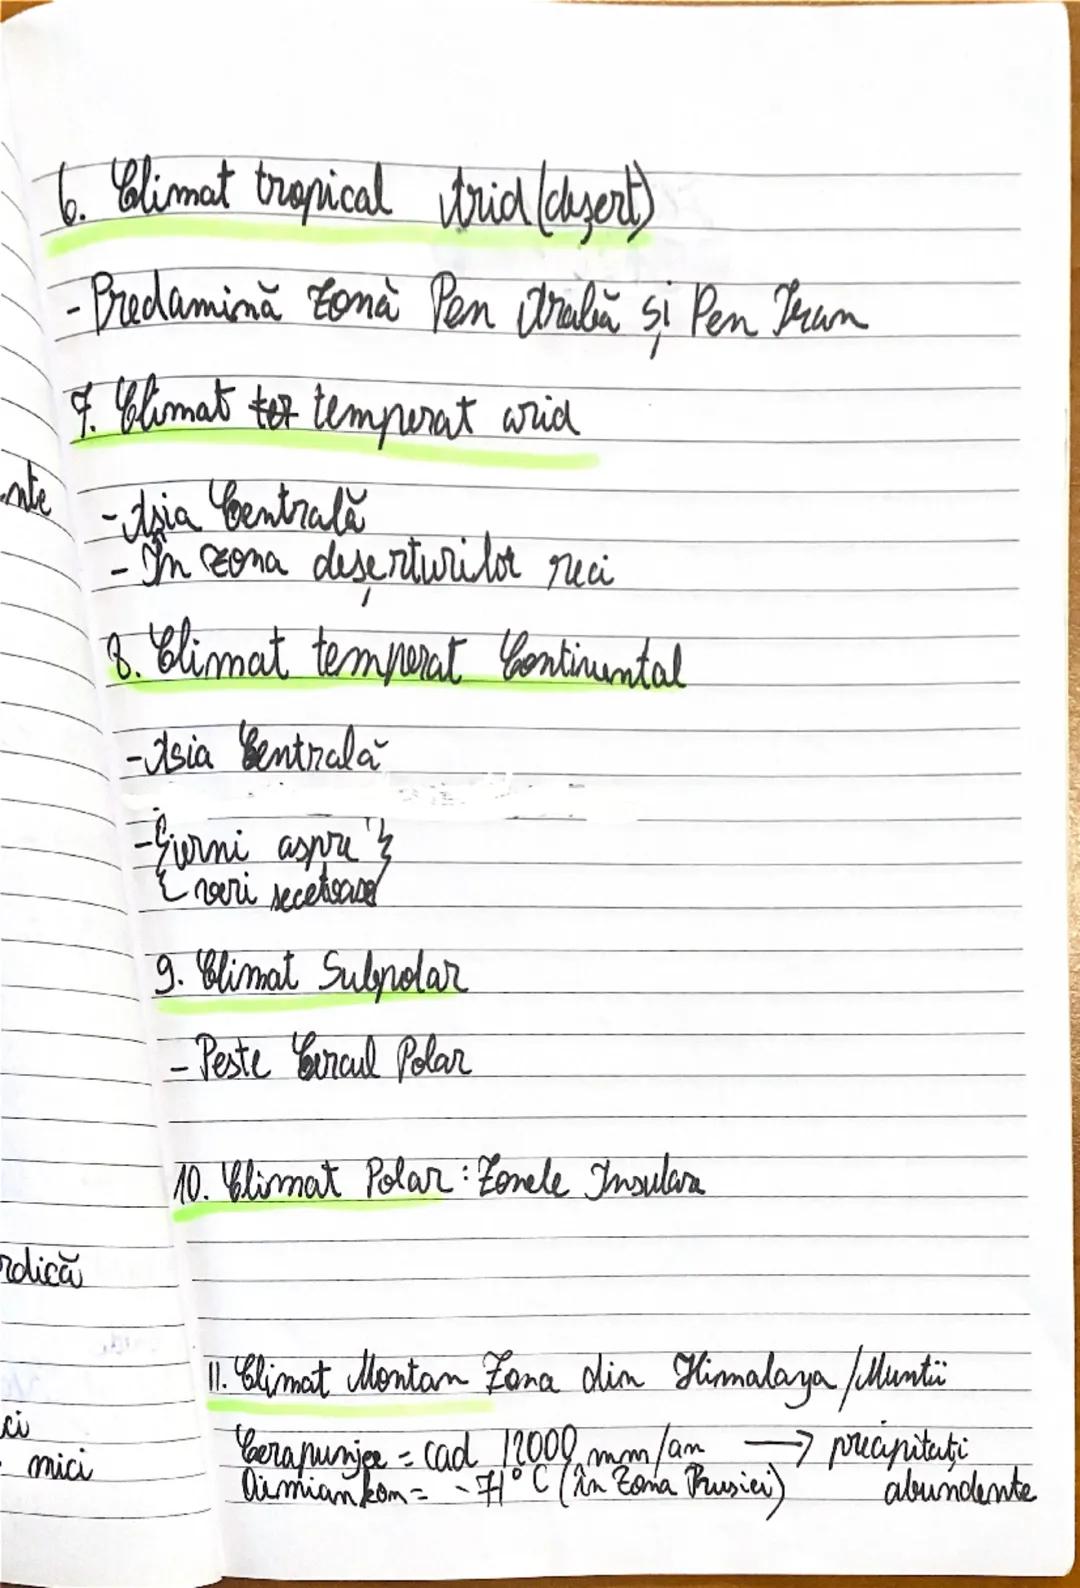 6. Climat tropical Arid (deșert)
- Predamină zonă Pen Arabă și Pen Iran
7. Climat temperat arid
nte
- Asia Centrală
- În zona deșerturilor reci
8. Climat temperat Continental
- Asia Centrală
- {ierni aspre}
{veri secetoase}
9. Climat Subpolar
- Peste Cercul Polar
10. Climat Polar: Zonele Insulare
rdică
11. Climat Montan Zona din Himalaya / Muntii
ci
Cerapunjee = cad 12000 mm/an → precipitați
mici
Oimiankom = -71°C (în Zona Rusiei) abundente